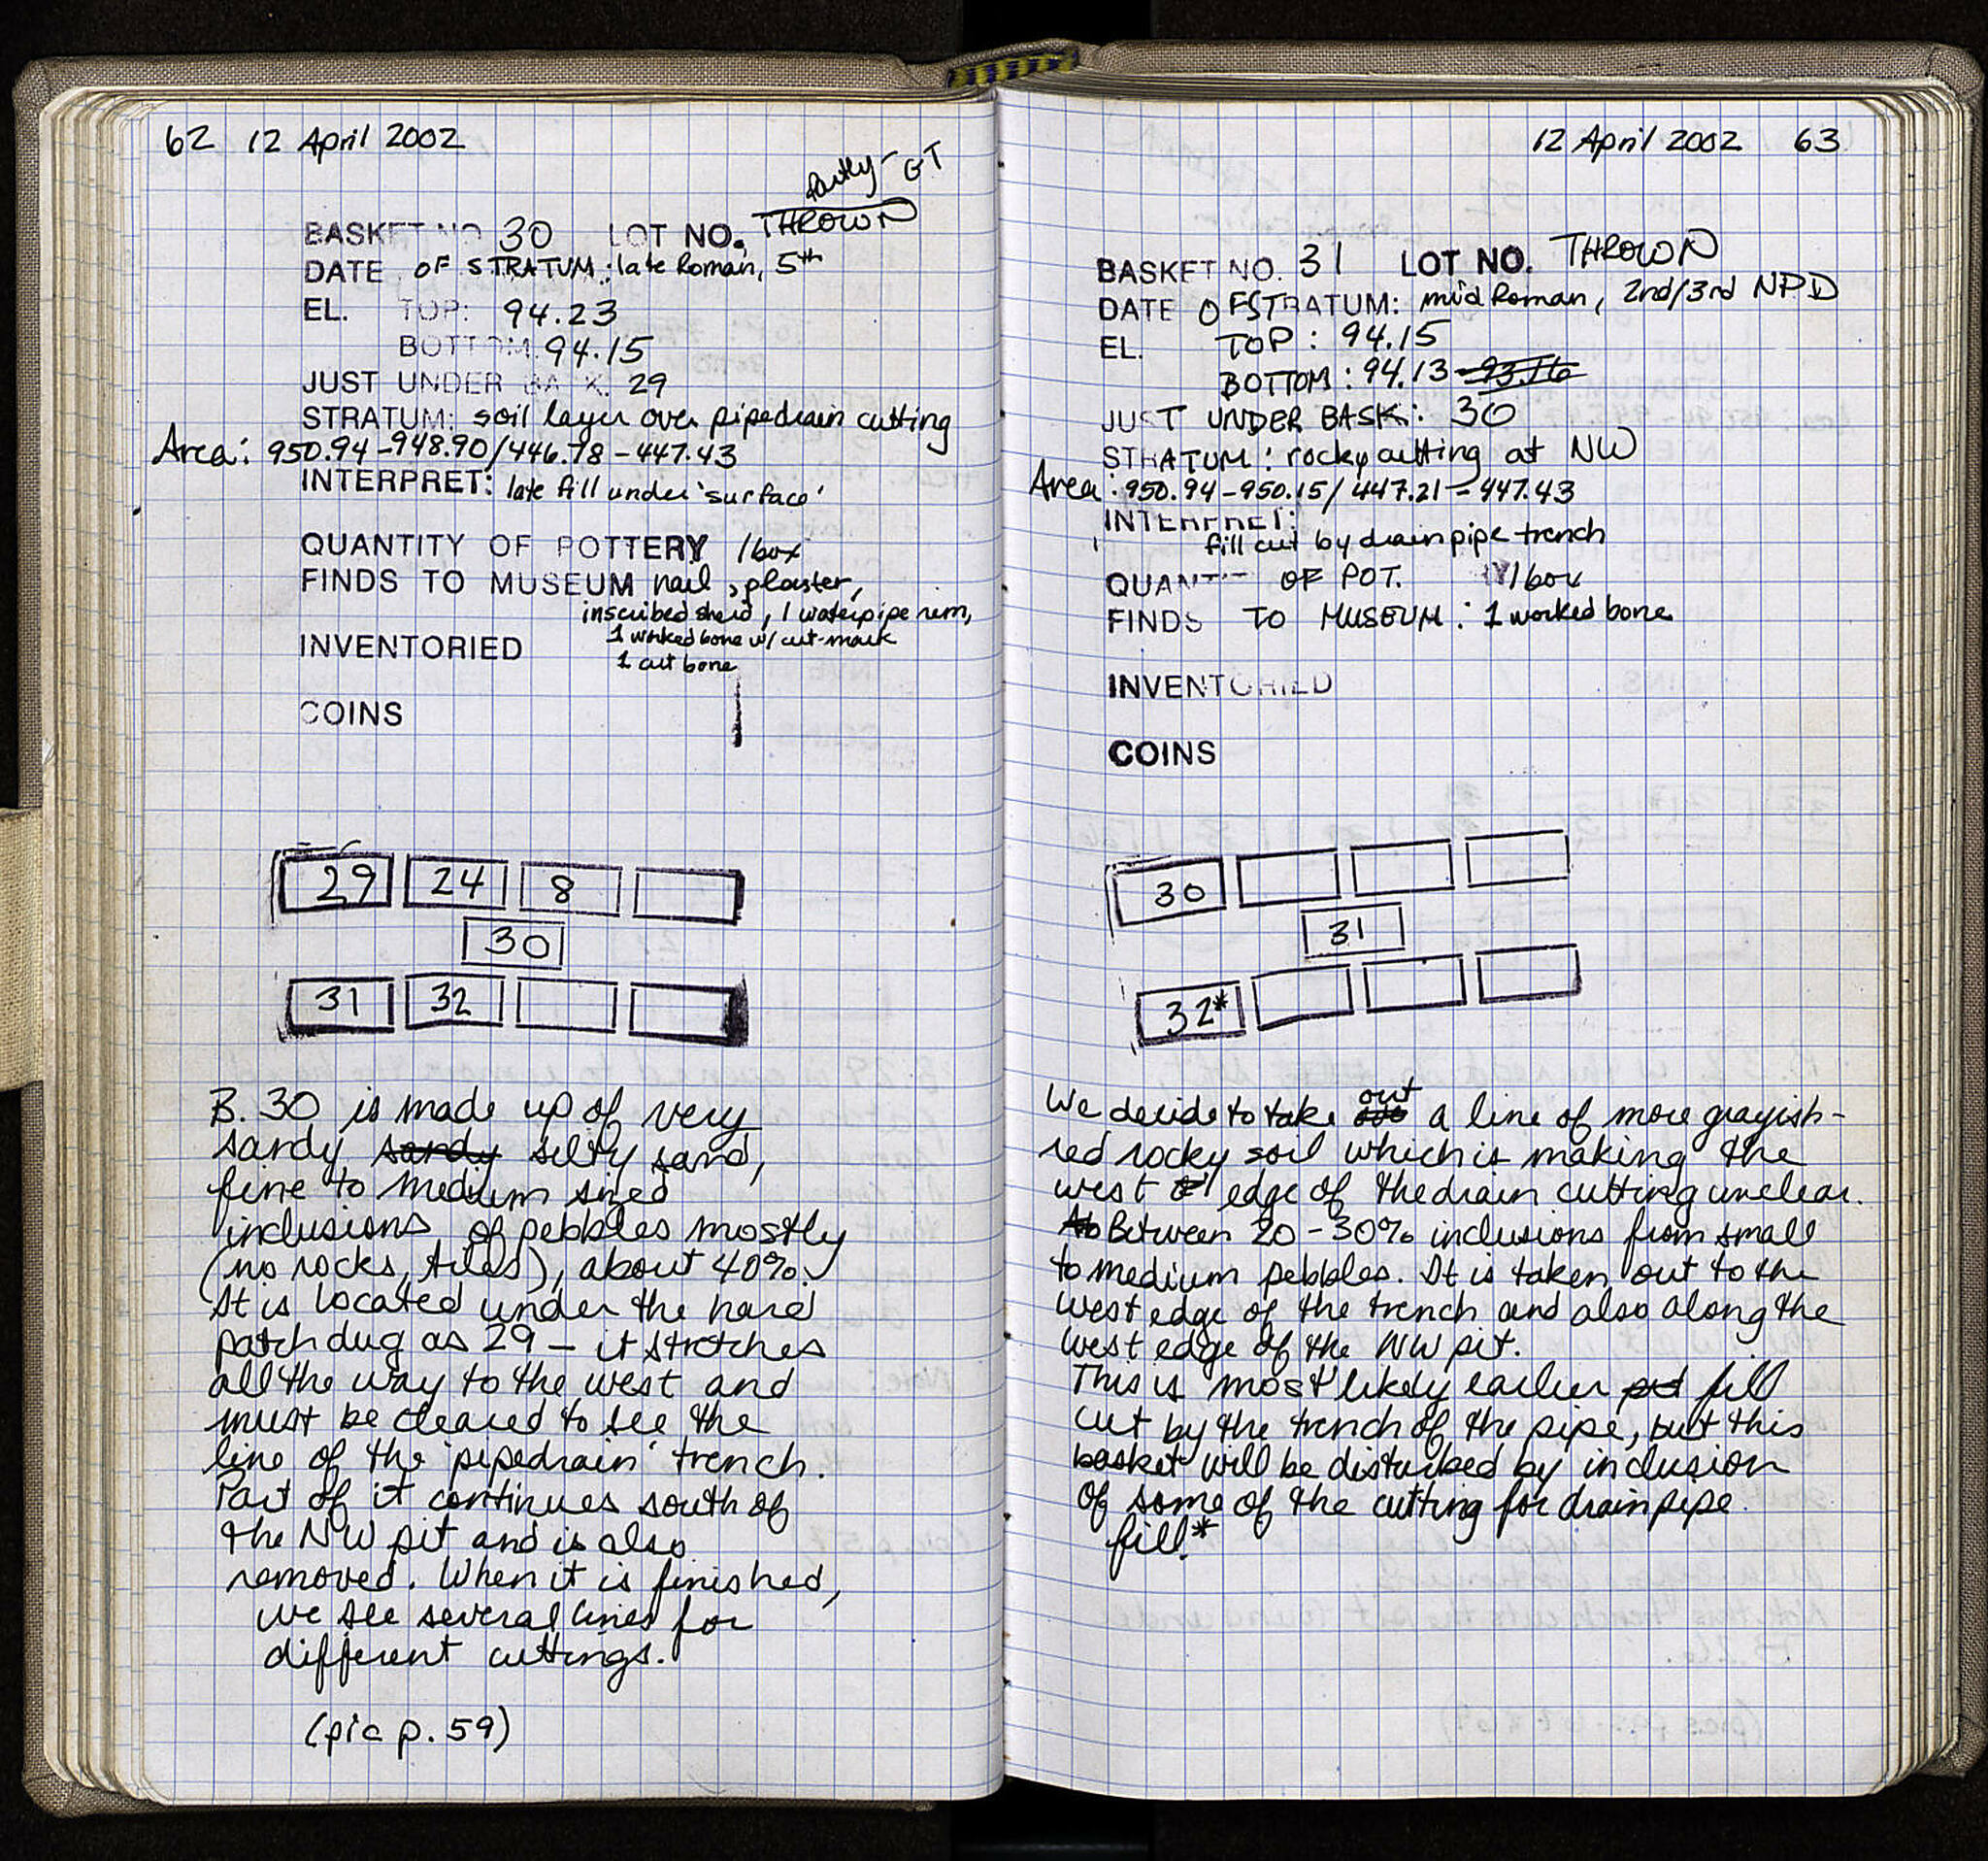 62 12 April 2002
partly - GT
BASKET NO. 30 LOT NO. THROWN
DATE OF STRATUM: late Roman, 5th
EL. TOP: 94.23
BOTTOM 94.15
JUST UNDER BASK. 29
STRATUM: soil layer over pipedrain cutting
Area: 950.94-948.90/446.78-447.43
INTERPRET: late fill under 'surface'
QUANTITY OF POTTERY 1 box
FINDS TO MUSEUM nail, plaster,
inscribed sherd, 1 waterpipe rim,
1 worked bone w/ cut-mark
INVENTORIED
1 cut bone
COINS
29 24 8
30
31 32
B. 30 is made up of very
sandy sandy silty sand,
fine to medium sized
inclusions of pebbles mostly
(no rocks, tiles), about 40%.
It is located under the hard
patch dug as 29 - it stretches
all the way to the west and
must be cleared to see the
line of the 'pipedrain' trench.
Part of it continues south of
the NW pit and is also
removed. When it is finished,
we see several lines for
different cuttings.
(pic p. 59)
12 April 2002 63
BASKET NO. 31 LOT NO. THROWN
DATE OF STRATUM: mid Roman, 2nd/3rd NPD
EL. TOP: 94.15
BOTTOM: 94.13 93.16
JUST UNDER BASK: 30
STRATUM: rocky cutting at NW
Area: 950.94-950.15/447.21-447.43
INTERPRET:
fill cut by drainpipe trench
QUANTIT OF POT. RY 1 box
FINDS TO MUSEUM: 1 worked bone
INVENTORIED
COINS
30
31
32*
We decide to take out a line of more grayish-
red rocky soil which is making the
west edge of the drain cutting unclear.
Between 20-30% inclusions from small
to medium pebbles. It is taken out to the
west edge of the trench and also along the
west edge of the NW pit.
This is most likely earlier fill
cut by the trench of the pipe, but this
basket will be disturbed by inclusion
of some of the cutting for drainpipe
fill.*